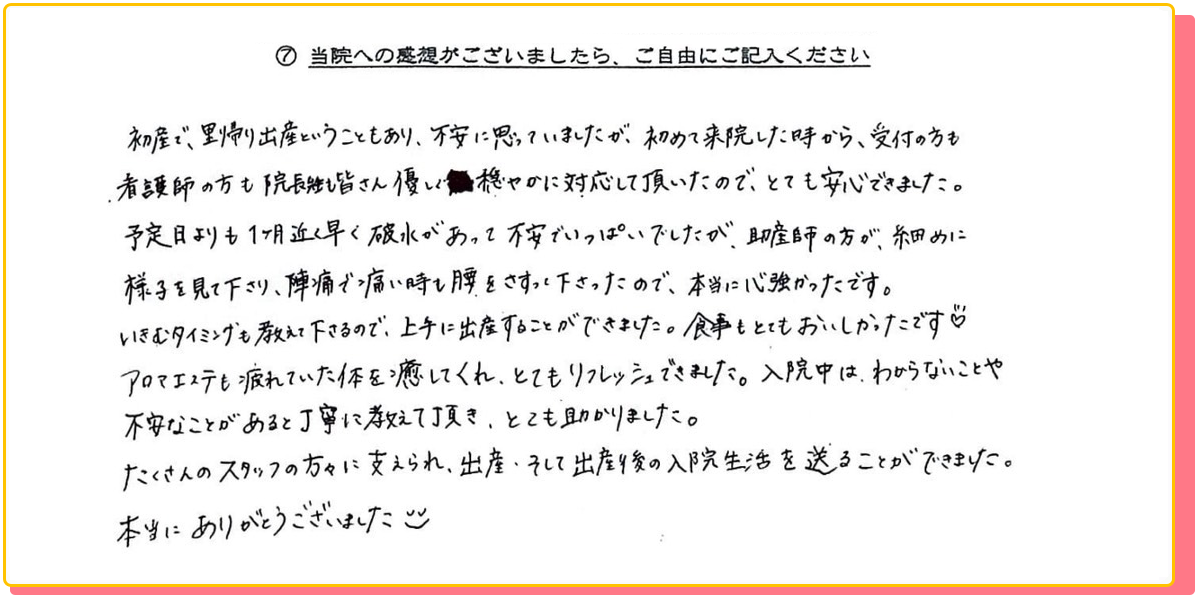 ⑦ 当院への感想がございましたら、ご自由にご記入ください
初産で、里帰り出産ということもあり、不安に思っていましたが、初めて来院した時から、受付の方も
看護師の方も院長先生も皆さん優しく穏やかに対応して頂いたので、とても安心できました。
予定日よりも1ヶ月近く早く破水があって不安でいっぱいでしたが、助産師の方が、細めに
様子を見て下さり、陣痛で痛い時も腰をさすって下さったので、本当に心強かったです。
いきむタイミングも教えて下さるので、上手に出産することができました。食事もとてもおいしかったです♡
アロマエステも疲れていた体を癒してくれ、とてもリフレッシュできました。入院中は、わからないことや
不安なことがあると丁寧に教えて頂き、とても助かりました。
たくさんのスタッフの方々に支えられ、出産・そして出産後の入院生活を送ることができました。
本当にありがとうございました